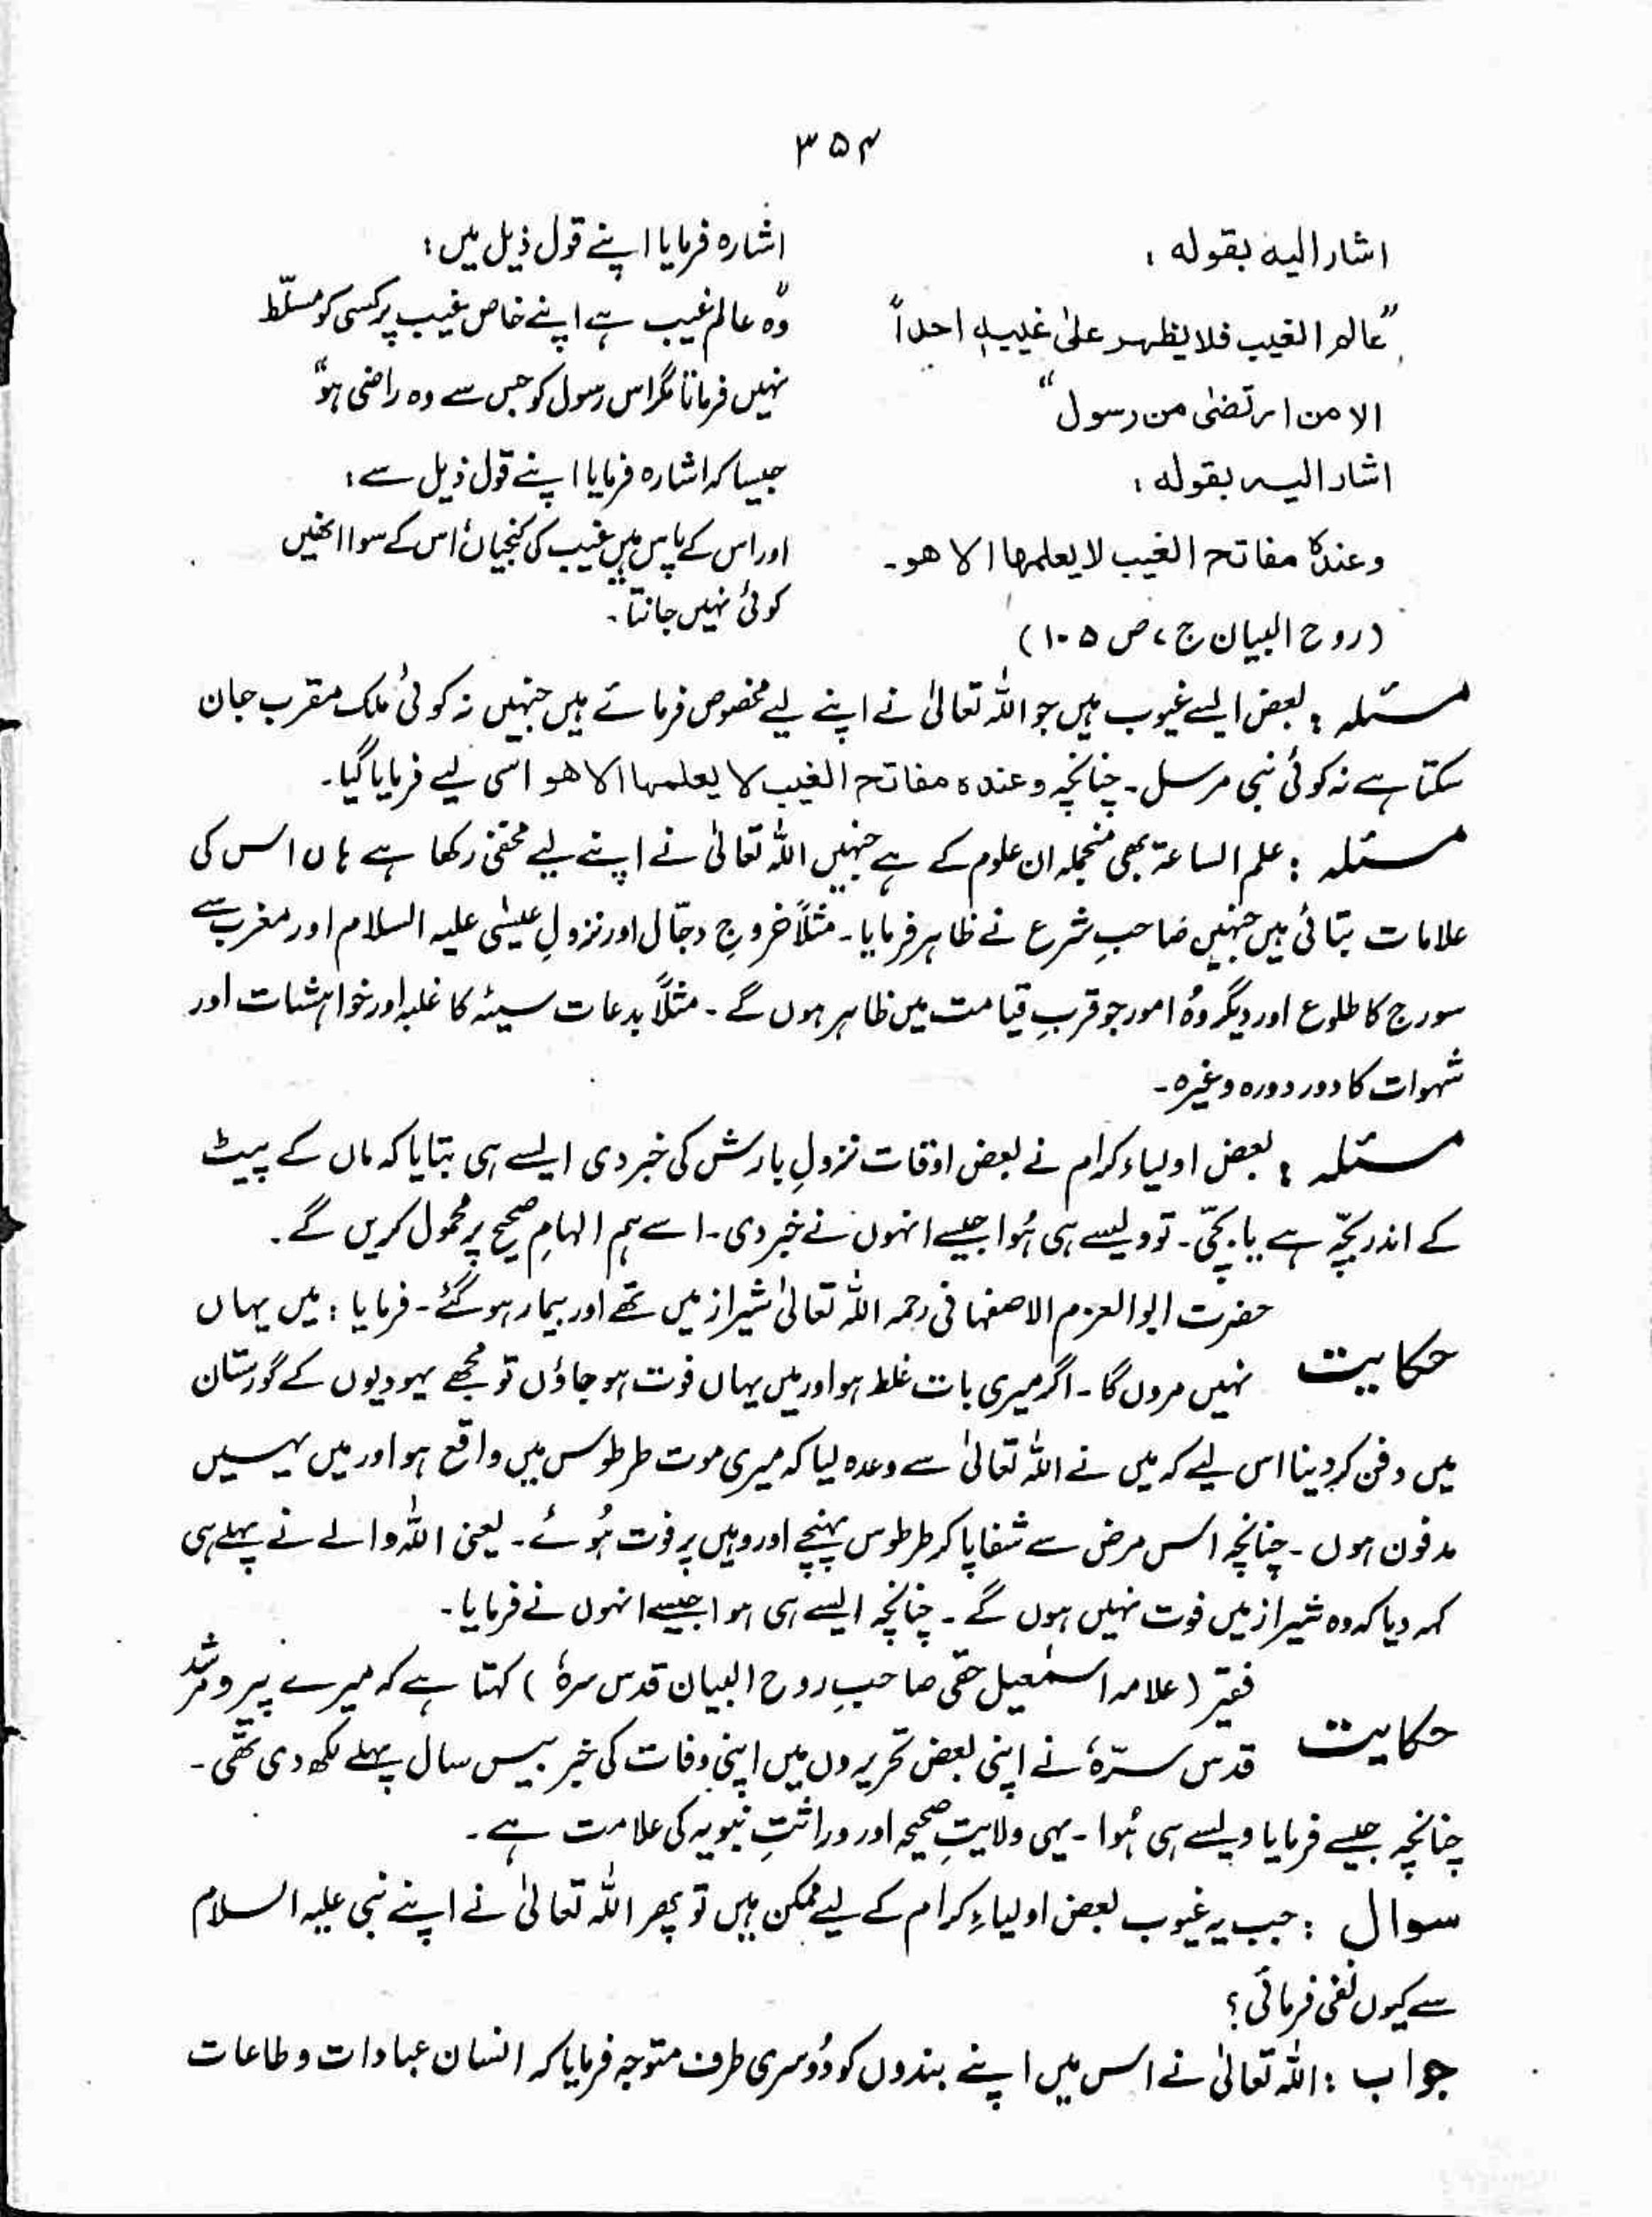 ۳۵۴
اشار الیہ بقولہ :
”عالم الغیب فلا یظہر علیٰ غیبہٖ احداً
الا من ارتضیٰ من رسول“
اشار الیہ بقولہ :
وعندہٗ مفاتح الغیب لا یعلمہا الا ھو۔
(روح البیان ج ۷، ص ۱۰۵)
اشارہ فرمایا اپنے قول ذیل میں :
”وہ عالم غیب ہے اپنے خاص غیب پر کسی کو مسلّط
نہیں فرماتا مگر اس رسول کو جس سے وہ راضی ہو“
جیسا کہ اشارہ فرمایا اپنے قول ذیل سے :
اور اس کے پاس ہیں غیب کی کنجیاں اس کے سوا انھیں
کوئی نہیں جانتا۔
مسئلہ : بعض ایسے غیوب ہیں جو اللہ تعالیٰ نے اپنے لیے مخصوص فرمائے ہیں جنہیں نہ کوئی ملک مقرب جان
سکتا ہے نہ کوئی نبی مرسل۔ چنانچہ وعندہ مفاتح الغیب لا یعلمہا الا ھو اسی لیے فرمایا گیا۔
مسئلہ : علم الساعۃ بھی منجملہ ان علوم کے ہے جنہیں اللہ تعالیٰ نے اپنے لیے مخفی رکھا ہے ہاں اس کی
علامات بتائی ہیں جنہیں صاحبِ شرع نے ظاہر فرمایا۔ مثلاً خروجِ دجّال اور نزولِ عیسٰی علیہ السلام اور مغرب سے
سورج کا طلوع اور دیگر وُہ امور جو قربِ قیامت میں ظاہر ہوں گے۔ مثلاً بدعات سیئہ کا غلبہ اور خواہشات اور
شہوات کا دور دورہ وغیرہ۔
مسئلہ : بعض اولیاء کرام نے بعض اوقات نزولِ بارش کی خبر دی ایسے ہی بتایا کہ ماں کے پیٹ
کے اندر بچّہ ہے یا بچّی۔ تو ویسے ہی ہُوا جیسے انہوں نے خبر دی۔ اسے ہم الہامِ صحیح پر محمول کریں گے۔
حکایت حضرت ابوالعزم الاصفہانی رحمہ اللہ تعالیٰ شیراز میں تھے اور بیمار ہو گئے۔ فرمایا : میں یہاں
نہیں مروں گا۔ اگر میری بات غلط ہو اور میں یہاں فوت ہو جاؤں تو مجھے یہودیوں کے گورستان
میں دفن کر دینا اس لیے کہ میں نے اللہ تعالیٰ سے وعدہ لیا کہ میری موت طرطوس میں واقع ہو اور میں یہیں
مدفون ہوں۔ چنانچہ اس مرض سے شفا پا کر طرطوس پہنچے اور وہیں پر فوت ہُوئے۔ یعنی اللہ والے نے پہلے ہی
کہہ دیا کہ وہ شیراز میں فوت نہیں ہوں گے۔ چنانچہ ایسے ہی ہوا جیسے انہوں نے فرمایا۔
حکایت فقیر (علامہ اسمٰعیل حقی صاحبِ روح البیان قدس سرہٗ) کہتا ہے کہ میرے پیر و مرشد
قدس سرّہٗ نے اپنی بعض تحریروں میں اپنی وفات کی خبر بیس سال پہلے لکھ دی تھی۔
چنانچہ جیسے فرمایا ویسے ہی ہُوا۔ یہی ولایتِ صحیحہ اور وراثتِ نبویہ کی علامت ہے۔
سوال : جب یہ غیوب بعض اولیاءِ کرام کے لیے ممکن ہیں تو پھر اللہ تعالیٰ نے اپنے نبی علیہ السلام
سے کیوں نفی فرمائی؟
جواب : اللہ تعالیٰ نے اس میں اپنے بندوں کو دُوسری طرف متوجہ فرمایا کہ انسان عبادات و طاعات